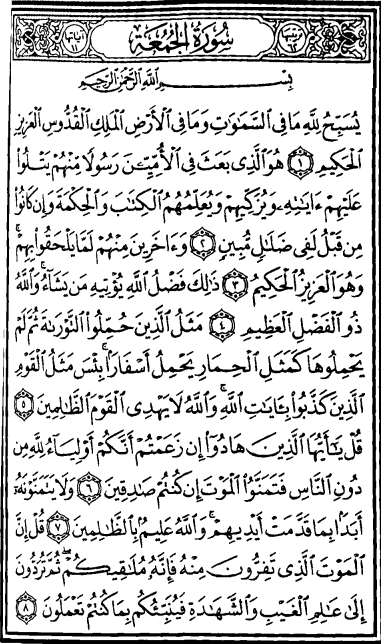 ترتيبها ٦٢ سُورَةُ الْجُمُعَةِ آياتها ١١
بِسْمِ اللَّهِ الرَّحْمَٰنِ الرَّحِيمِ
يُسَبِّحُ لِلَّهِ مَا فِي السَّمَٰوَٰتِ وَمَا فِي الْأَرْضِ الْمَلِكِ الْقُدُّوسِ الْعَزِيزِ
الْحَكِيمِ ﴿١﴾ هُوَ الَّذِي بَعَثَ فِي الْأُمِّيِّـۧنَ رَسُولًا مِّنْهُمْ يَتْلُوا۟
عَلَيْهِمْ ءَايَٰتِهِۦ وَيُزَكِّيهِمْ وَيُعَلِّمُهُمُ الْكِتَٰبَ وَالْحِكْمَةَ وَإِن كَانُوا۟
مِن قَبْلُ لَفِي ضَلَٰلٍ مُّبِينٍ ﴿٢﴾ وَءَاخَرِينَ مِنْهُمْ لَمَّا يَلْحَقُوا۟ بِهِمْ ۚ
وَهُوَ الْعَزِيزُ الْحَكِيمُ ﴿٣﴾ ذَٰلِكَ فَضْلُ اللَّهِ يُؤْتِيهِ مَن يَشَآءُ ۚ وَاللَّهُ
ذُو الْفَضْلِ الْعَظِيمِ ﴿٤﴾ مَثَلُ الَّذِينَ حُمِّلُوا۟ التَّوْرَىٰةَ ثُمَّ لَمْ
يَحْمِلُوهَا كَمَثَلِ الْحِمَارِ يَحْمِلُ أَسْفَارًۢا ۚ بِئْسَ مَثَلُ الْقَوْمِ
الَّذِينَ كَذَّبُوا۟ بِـَٔايَٰتِ اللَّهِ ۚ وَاللَّهُ لَا يَهْدِي الْقَوْمَ الظَّٰلِمِينَ ﴿٥﴾
قُلْ يَٰٓأَيُّهَا الَّذِينَ هَادُوٓا۟ إِن زَعَمْتُمْ أَنَّكُمْ أَوْلِيَآءُ لِلَّهِ مِن
دُونِ النَّاسِ فَتَمَنَّوُا۟ الْمَوْتَ إِن كُنتُمْ صَٰدِقِينَ ﴿٦﴾ وَلَا يَتَمَنَّوْنَهُۥٓ
أَبَدًۢا بِمَا قَدَّمَتْ أَيْدِيهِمْ ۚ وَاللَّهُ عَلِيمٌۢ بِالظَّٰلِمِينَ ﴿٧﴾ قُلْ إِنَّ
الْمَوْتَ الَّذِي تَفِرُّونَ مِنْهُ فَإِنَّهُۥ مُلَٰقِيكُمْ ۖ ثُمَّ تُرَدُّونَ
إِلَىٰ عَٰلِمِ الْغَيْبِ وَالشَّهَٰدَةِ فَيُنَبِّئُكُم بِمَا كُنتُمْ تَعْمَلُونَ ﴿٨﴾